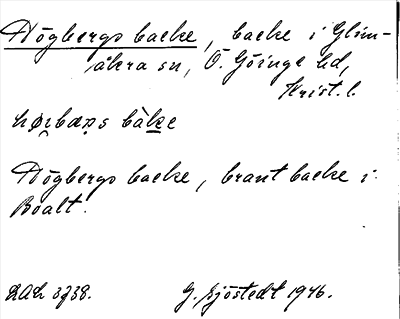 Högbergs backe, backe i Glim-
åkra sn, Ö. Göinge hd,
Krist. l.
Högbergs backe, brant backe i
Boalt.
G. Sjöstedt 1946.